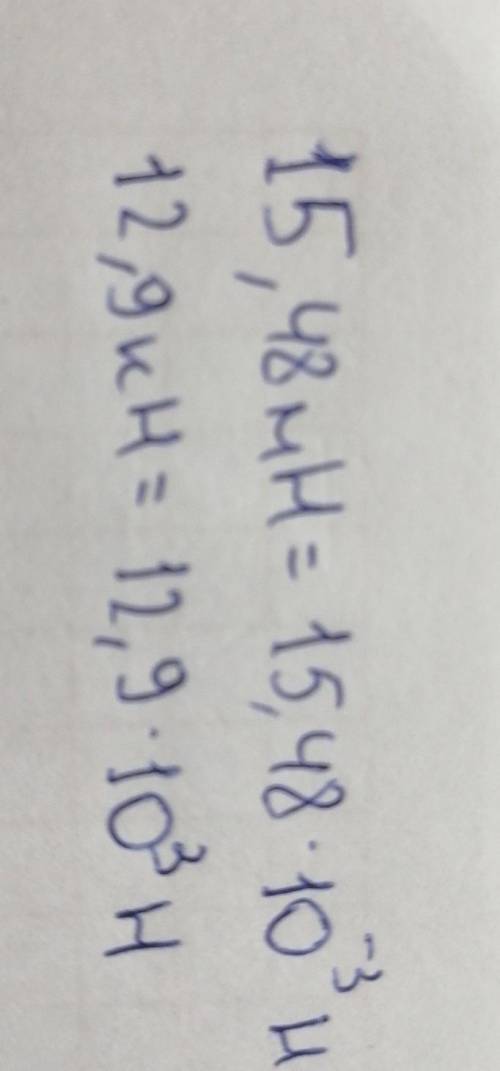 15,48мН = 15,48·10⁻³ Н
12,9кН = 12,9·10³ Н